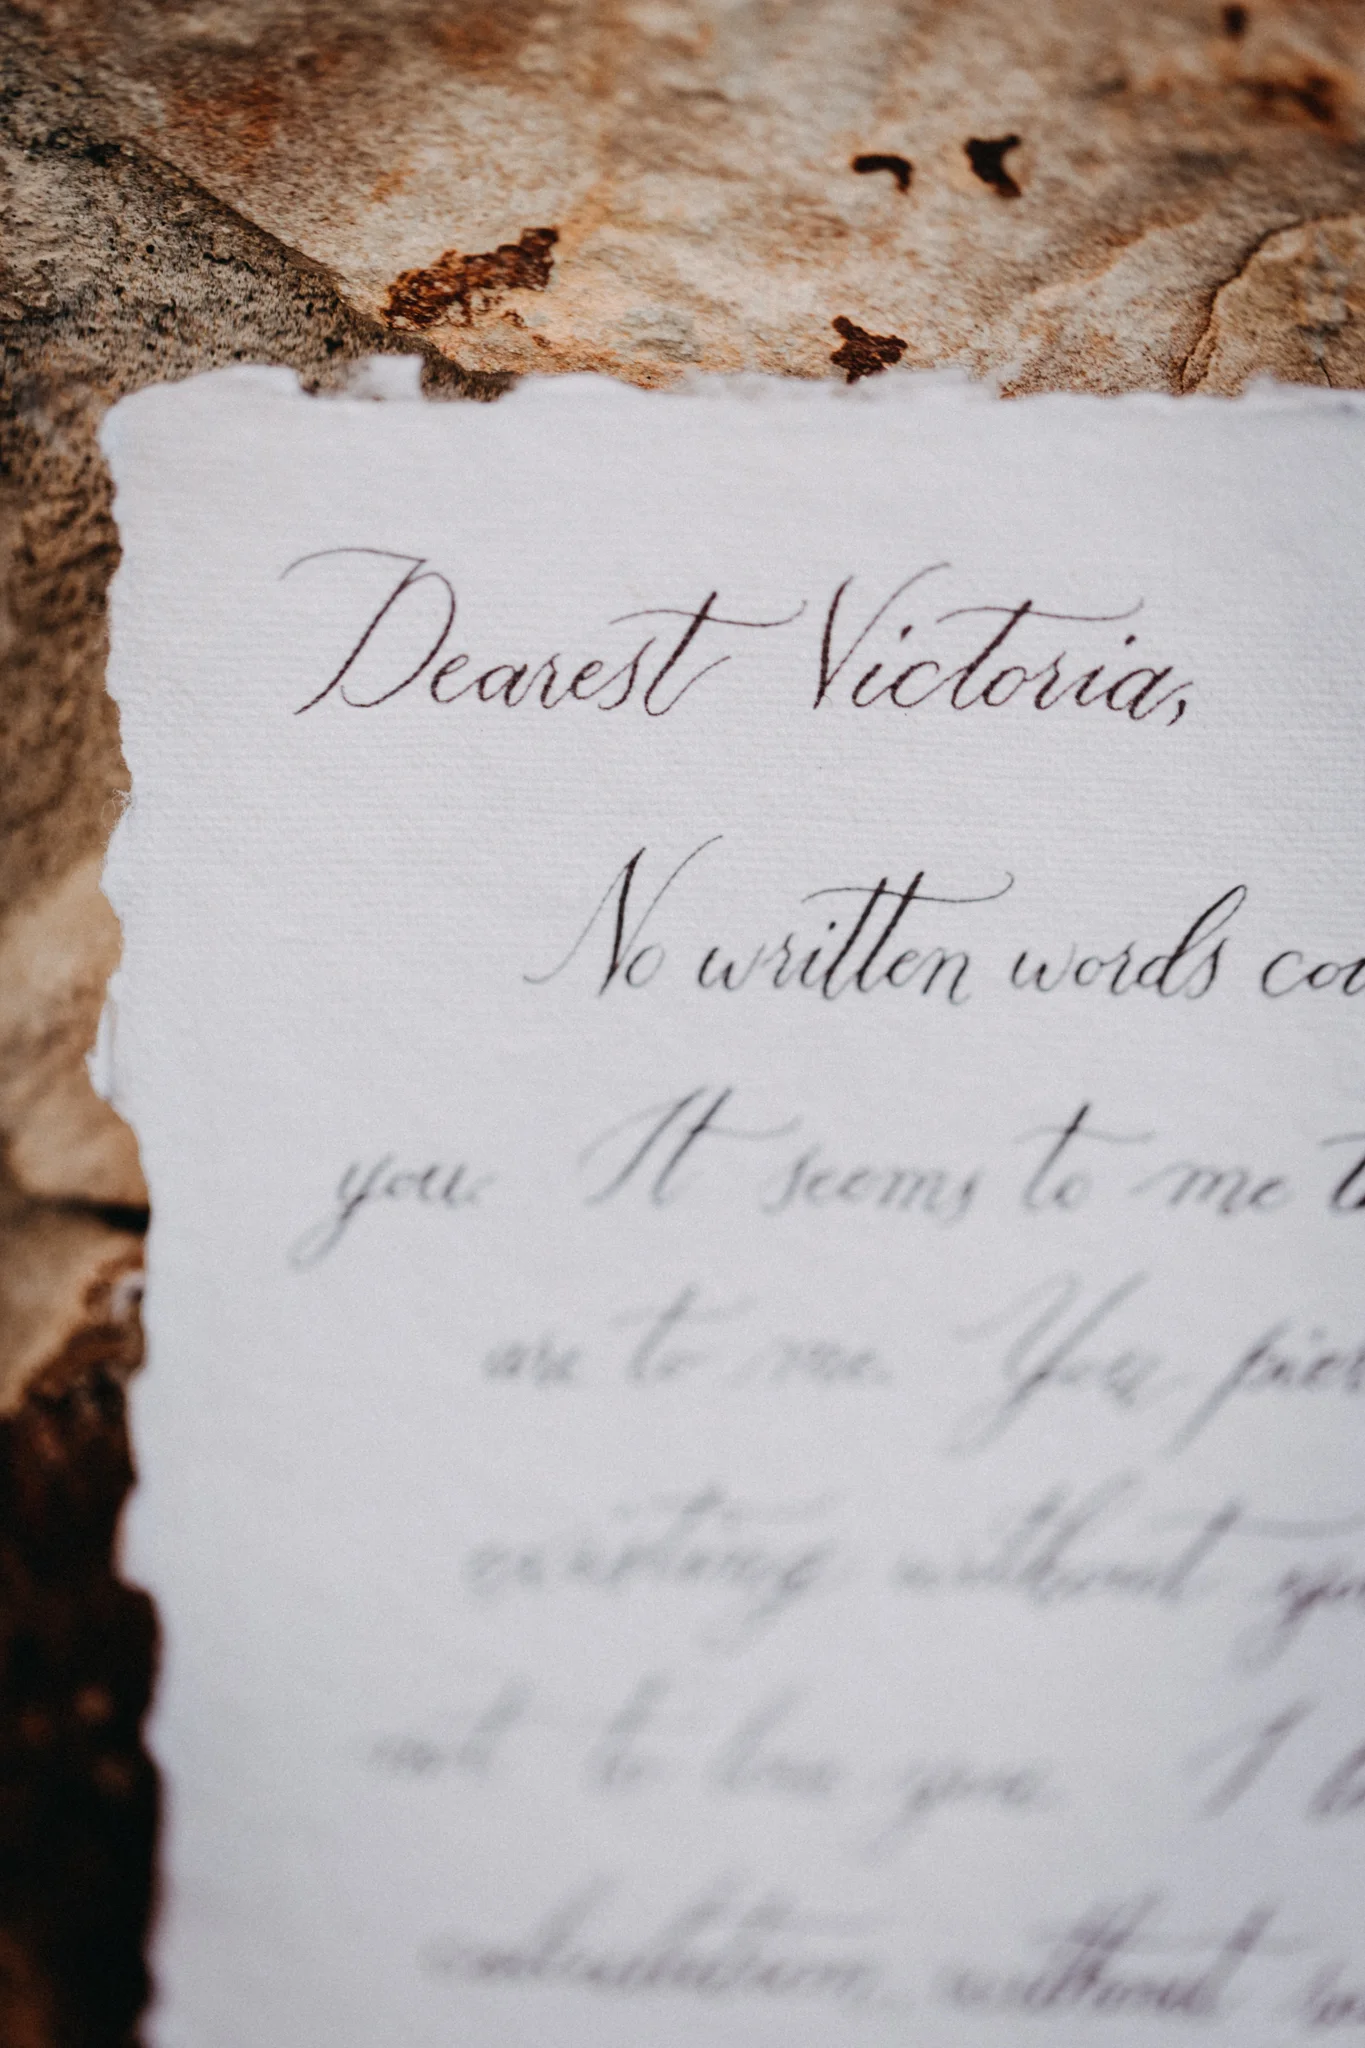 Dearest Victoria,
No written words cou
you. It seems to me t
are to me. You pier
existing without you
not to love you. I
calculation, without